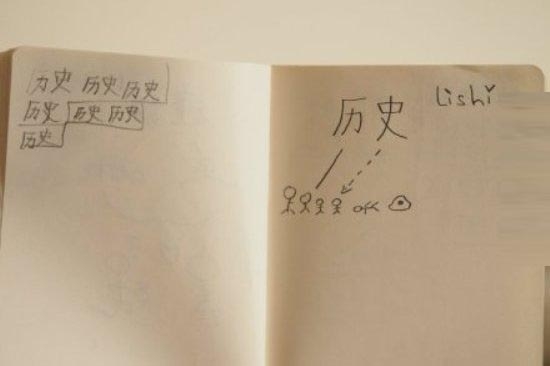 历史 历史 历史
历史 历史 历史
历史
历史 Lishǐ
ok